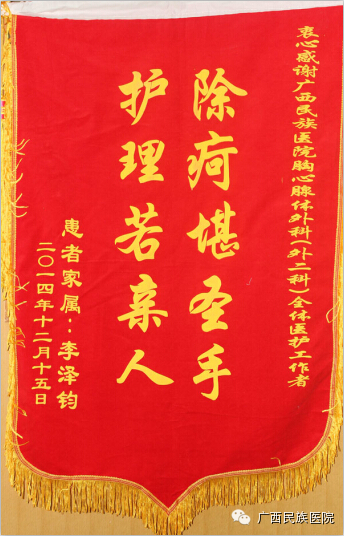 衷心感谢广西民族医院胸心腺体外科(外二科)全体医护工作者
除疴堪圣手
护理若亲人
患者家属:李泽钧
二〇一四年十二月十五日
广西民族医院